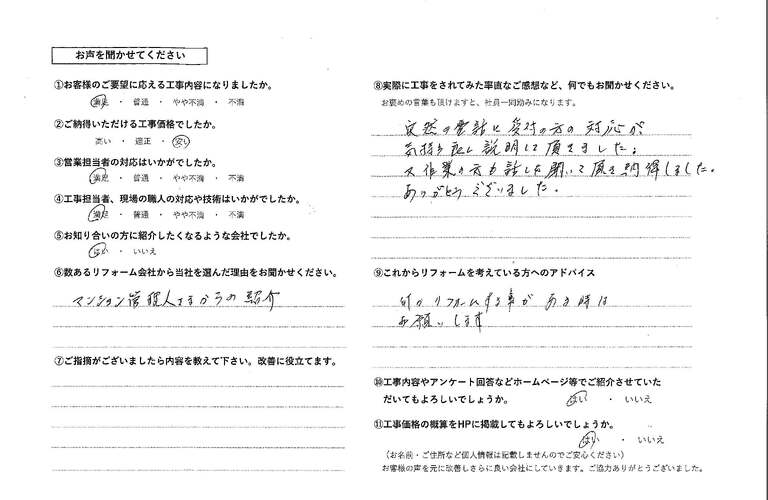 お声を聞かせてください
①お客様のご要望に応える工事内容になりましたか。
満足 ・ 普通 ・ やや不満 ・ 不満
②ご納得いただける工事価格でしたか。
高い ・ 適正 ・ 安い
③営業担当者の対応はいかがでしたか。
満足 ・ 普通 ・ やや不満 ・ 不満
④工事担当者、現場の職人の対応や技術はいかがでしたか。
満足 ・ 普通 ・ やや不満 ・ 不満
⑤お知り合いの方に紹介したくなるような会社でしたか。
はい ・ いいえ
⑥数あるリフォーム会社から当社を選んだ理由をお聞かせください。
マンション管理人さまからの紹介
⑦ご指摘がございましたら内容を教えて下さい。改善に役立てます。
⑧実際に工事をされてみた率直なご感想など、何でもお聞かせください。
お褒めの言葉も頂けますと、社員一同励みになります。
突然の電話に受付の方の対応が
気持ち良く説明して頂きました。
又作業の方も話しを聞いて頂き納得しました。
ありがとうございました。
⑨これからリフォームを考えている方へのアドバイス
何かリフォームする事がある時は
お願いします
⑩工事内容やアンケート回答などホームページ等でご紹介させていた
だいてもよろしいでしょうか。 はい ・ いいえ
⑪工事価格の概算をHPに掲載してもよろしいでしょうか。
はい ・ いいえ
（お名前・ご住所など個人情報は記載しませんのでご安心ください）
お客様の声を元に改善しさらに良い会社にしていきます。ご協力ありがとうございました。